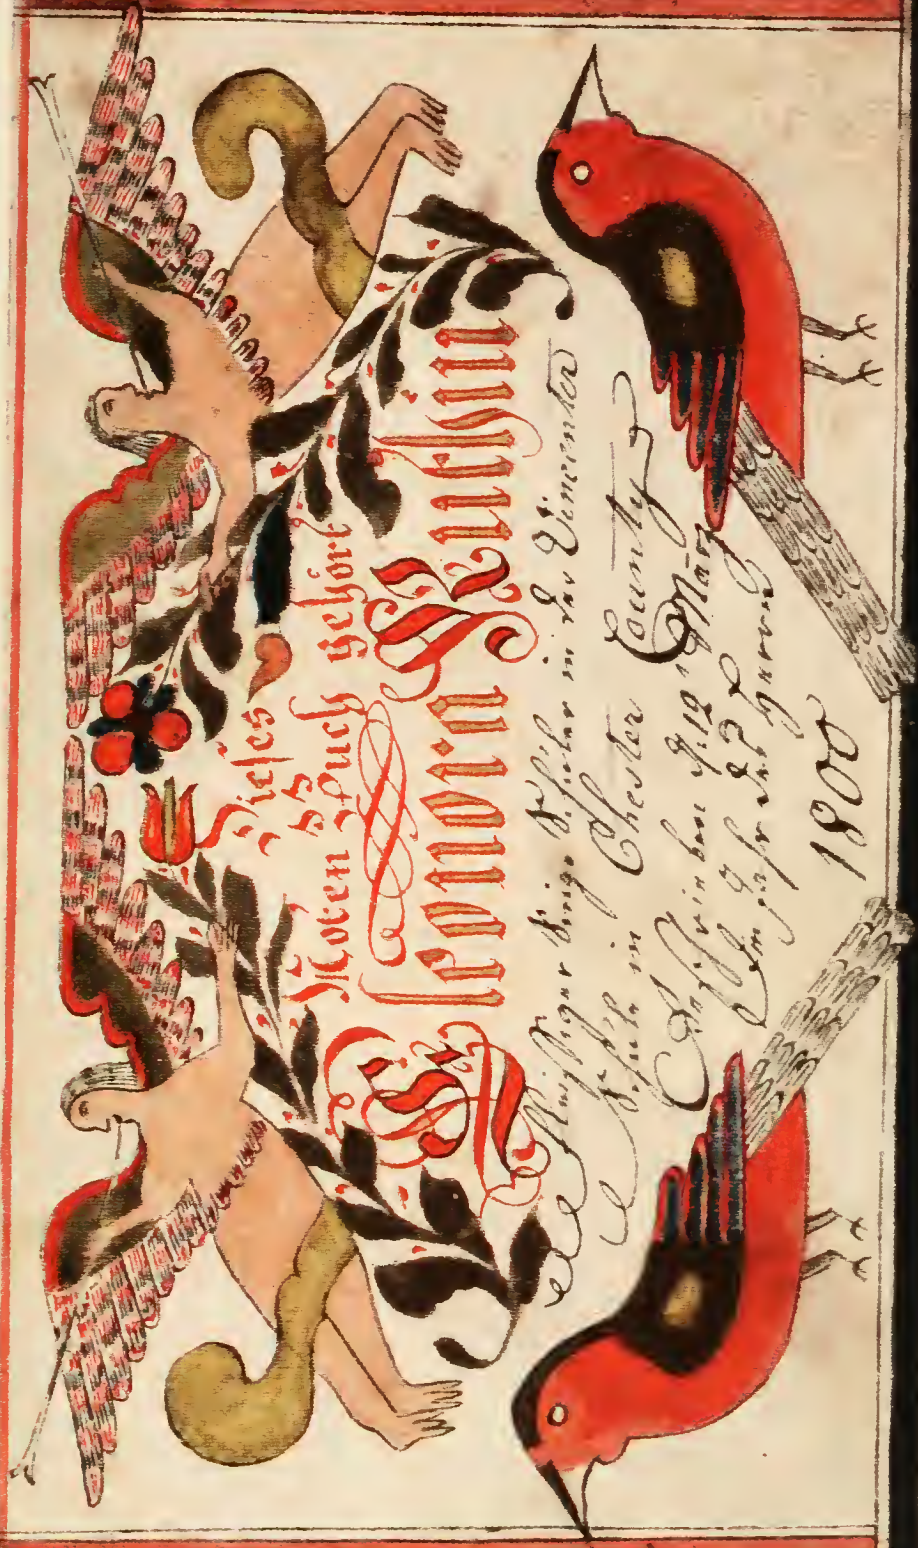 Dieses
Noten Buch gehört
Eleonora
Schüler in der Vincenter
Schule in Chester County
Geschrieben d. 12 März
Im Jahr des Herrn
1800